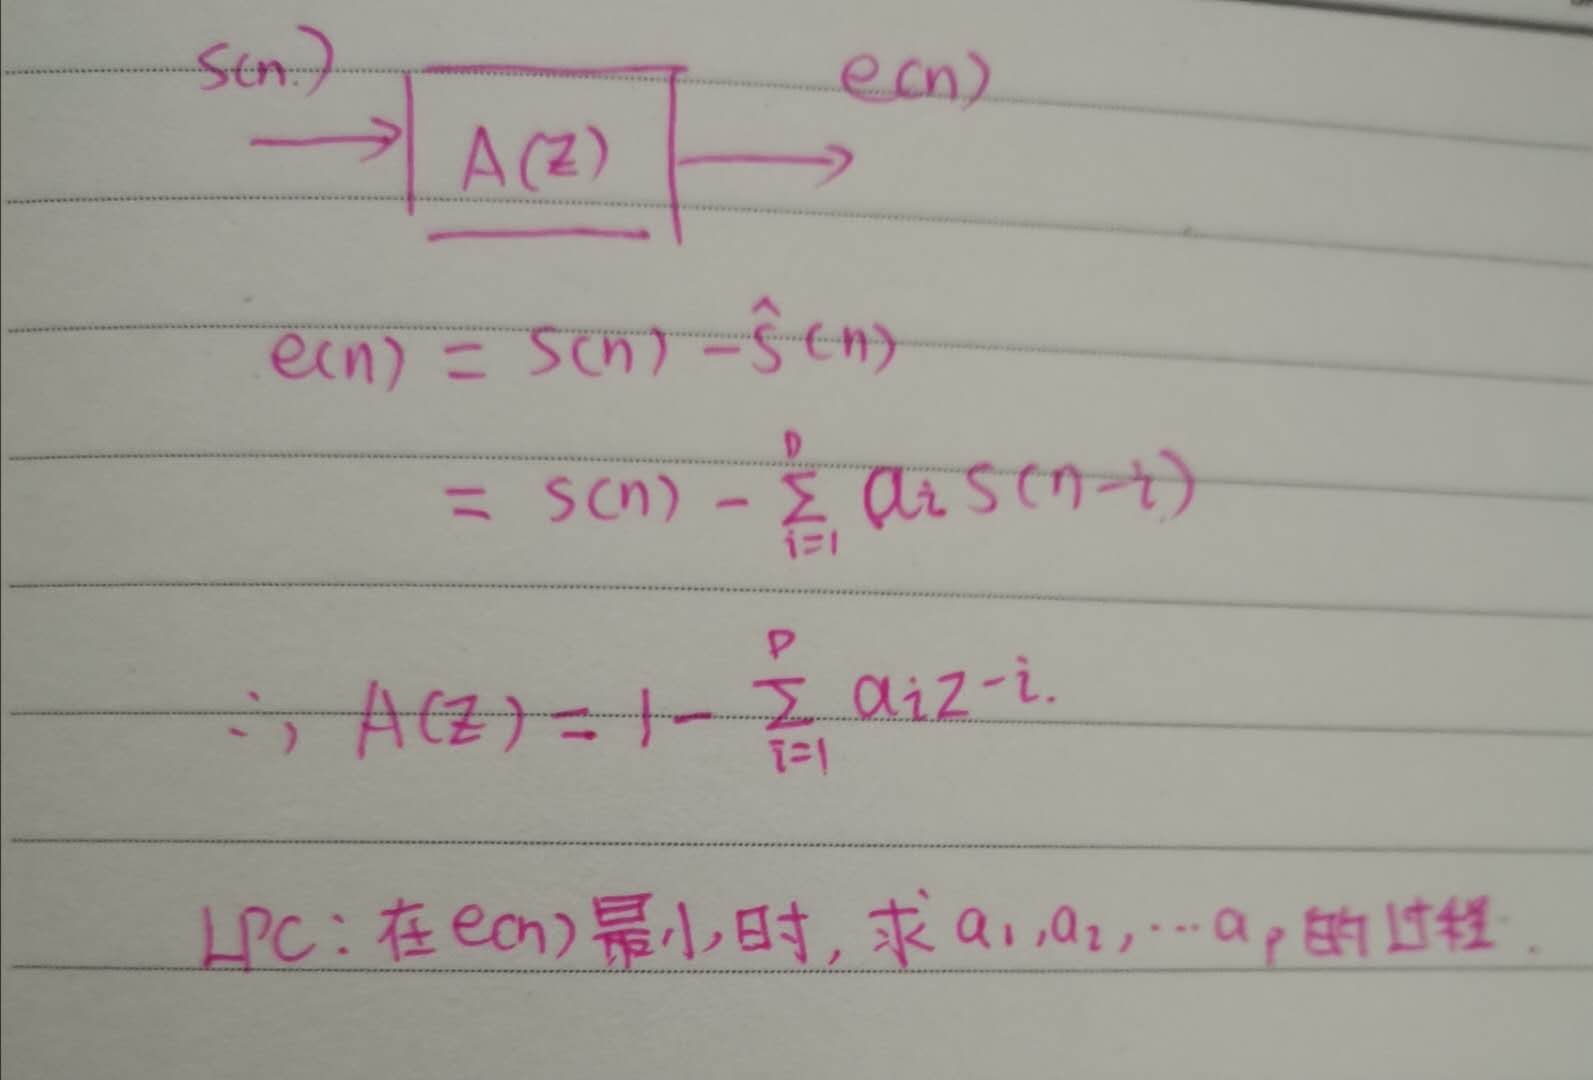 s(n) e(n)
A(z)
e(n) = s(n) - ŝ(n)
= s(n) - Σ_{i=1}^{p} a_i s(n-i)
∴, A(z) = 1 - Σ_{i=1}^{p} a_i z^{-i}.
LPC: 在e(n)最小时, 求a₁,a₂,…a_p的过程.